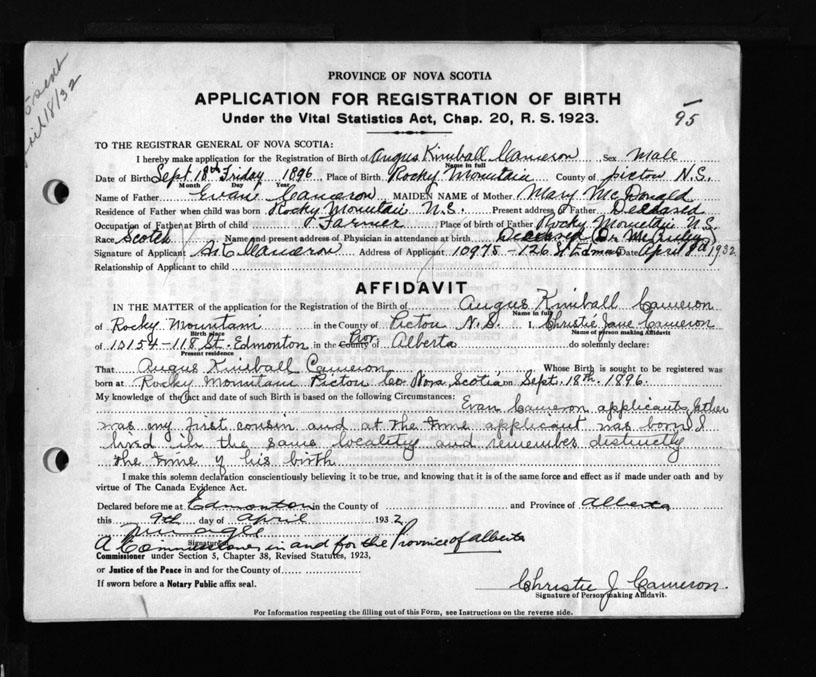 sent
18/32
PROVINCE OF NOVA SCOTIA
APPLICATION FOR REGISTRATION OF BIRTH
Under the Vital Statistics Act, Chap. 20, R. S. 1923.
95
TO THE REGISTRAR GENERAL OF NOVA SCOTIA:
I hereby make application for the Registration of Birth of Angus Kimball Cameron Sex Male
Name in full
Date of Birth Sept 18th Friday 1896 Place of Birth Rocky Mountain County of Pictou N.S.
Month Day Year
Name of Father Evan Cameron MAIDEN NAME of Mother Mary McDonald
Residence of Father when child was born Rocky Mountain N.S. Present address of Father Deceased
Occupation of Father at Birth of child Farmer Place of birth of Father Rocky Mountain N.S.
Race Scotch Name and present address of Physician in attendance at birth Deceased Dr
Signature of Applicant A. K. Cameron Address of Applicant 10975-126 St Edmon Date April 8th 1932
Relationship of Applicant to child
AFFIDAVIT
IN THE MATTER of the application for the Registration of the Birth of Angus Kimball Cameron
Name in full
of Rocky Mountain in the County of Pictou N.S. I, Christie Jane Cameron
Birth place Name of person making Affidavit
of 10154-118 St. Edmonton in the County of Prov. Alberta do solemnly declare:
Present residence
That Angus Kimball Cameron Whose Birth is sought to be registered was
born at Rocky Mountain Pictou Co. Nova Scotia on Sept. 18th. 1896.
My knowledge of the fact and date of such Birth is based on the following Circumstances: Evan Cameron applicants father
was my first cousin and at the time applicant was born I
lived in the same locality and remember distinctly
the time of his birth
I make this solemn declaration conscientiously believing it to be true, and knowing that it is of the same force and effect as if made under oath and by
virtue of The Canada Evidence Act.
Declared before me at Edmonton in the County of and Province of Alberta
this 9th day of April 1932
Signature of
A Commissioner in and for the Province of Alberta
Commissioner under Section 5, Chapter 38, Revised Statutes, 1923,
or Justice of the Peace in and for the County of
If sworn before a Notary Public affix seal.
Christie J Cameron.
Signature of Person making Affidavit.
For Information respecting the filling out of this Form, see Instructions on the reverse side.